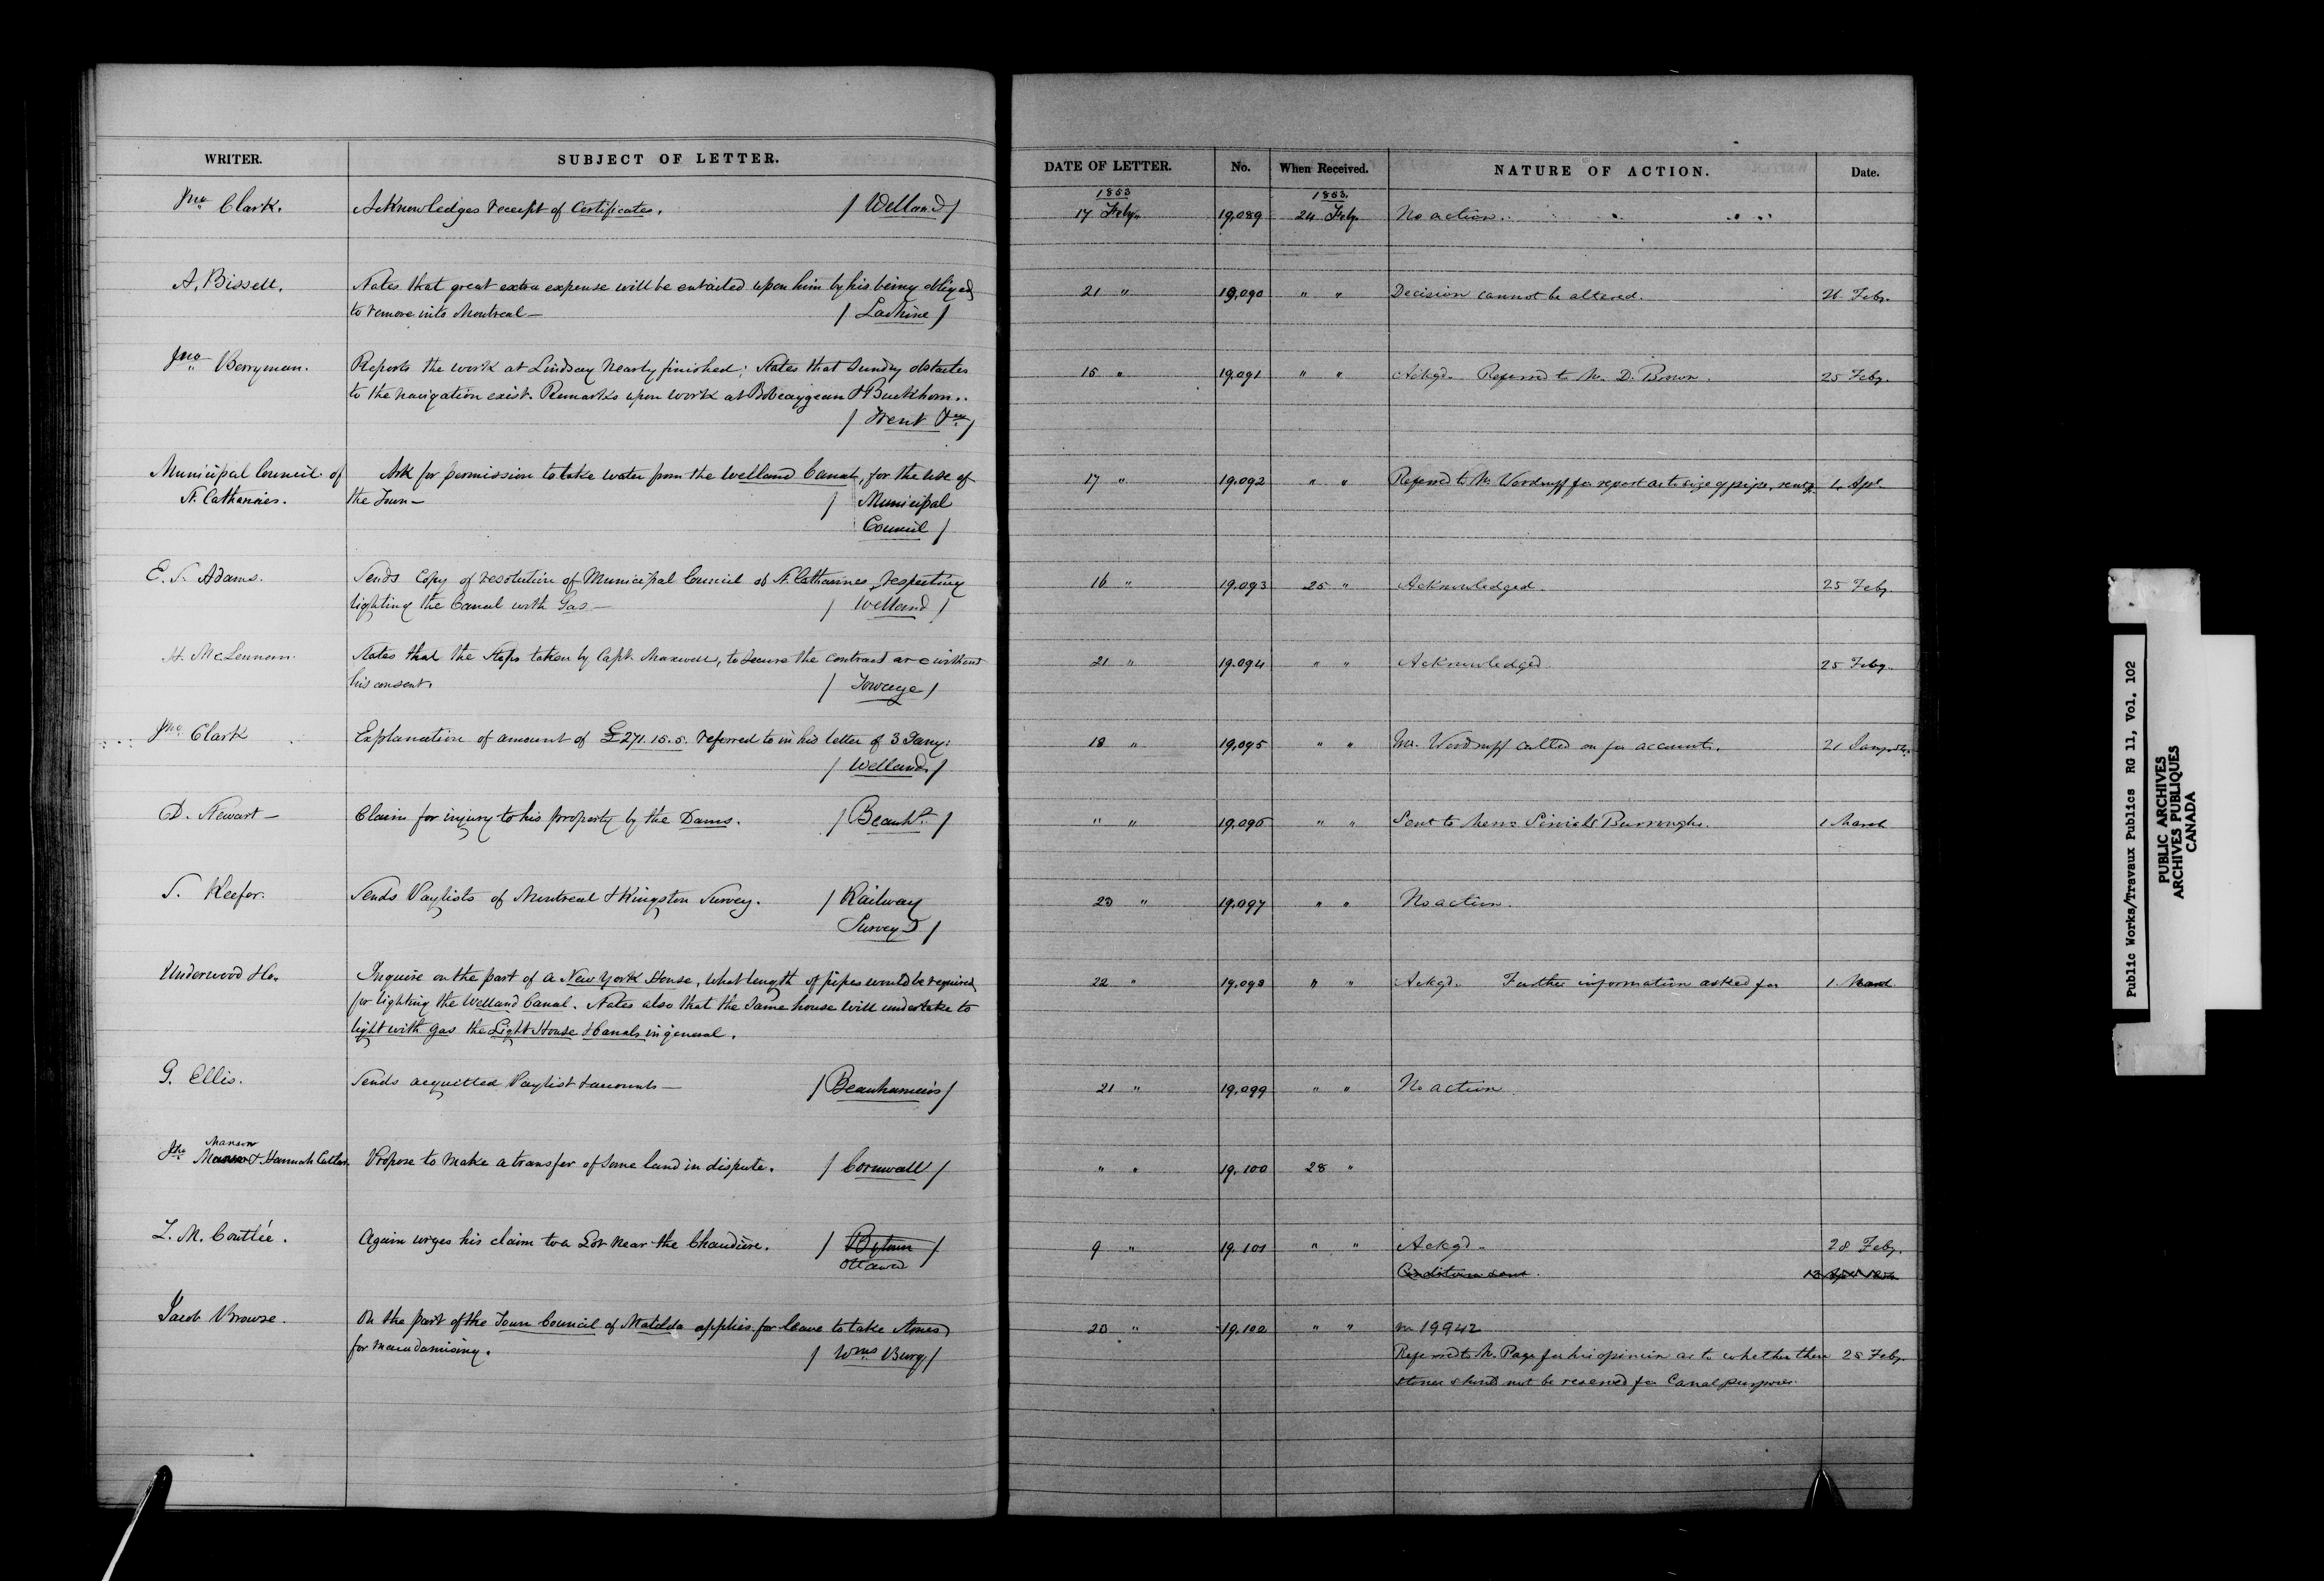 WRITER. SUBJECT OF LETTER. DATE OF LETTER. No. When Received. NATURE OF ACTION. Date.
1853 1853.
Jno Clark. Acknowledges receipt of Certificates. / Welland / 17 Feby. 19,089 24 Feby. No action.
A. Bissell. States that great extra expense will be entailed upon him by his being obliged 21 " 19,090 " " Decision cannot be altered. 26 Feby.
to remove into Montreal — / Lachine /
Jno Berryman. Reports the work at Lindsay nearly finished; States that sundry obstacles 15 " 19,091 " " Ackgd. Referred to Mr. D. Brown. 25 Feby.
to the navigation exist. Remarks upon work at Bobcaygean & Buckhorn.
/ Trent
Municipal Council of Ask for permission to take water from the Welland Canal, for the use of 17 " 19,092 " " Referred to Mr. Woodruff for report as to size of pipe, 1. Apl.
St. Catharines. the Town — / Municipal
Council /
E. S. Adams. Sends Copy of resolution of Municipal Council of St. Catharines respecting 16 " 19,093 25 " Acknowledged. 25 Feby.
lighting the Canal with Gas — / Welland /
H. McLennan. States that the steps taken by Capt. Maxwell, to secure the contract are without 21 " 19,094 " " Acknowledged. 25 Feby.
his consent. / Towage /
Jno Clark Explanation of amount of £271.15.5. referred to in his letter of 3 Jany. 18 " 19,095 " " Mr. Woodruff called on for accounts. 21 Jany
/ Welland /
D. Stewart — Claim for injury to his property by the Dams. / Beauhs. / " " 19,096 " " Sent to Messrs Burroughs. 1 March
S. Keefer. Sends Paylists of Montreal & Kingston Survey. / Railway 23 " 19,097 " " No action.
Surveys /
Underwood &Co. Inquire on the part of a New York House, what length of pipes would be required 22 " 19,098 " " Ackgd. Further information asked for 1. March.
for lighting the Welland Canal. States also that the same house will undertake to
light with gas the Light House & Canals in general.
G. Ellis. Sends acquitted Paylist & accounts — / Beauharnois / 21 " 19,099 " " No action
Manson
Jno & Hannah Cutler. Propose to make a transfer of some land in dispute. / Cornwall / " " 19,100 28 "
L. M. Coutlée. Again urges his claim to a Lot near the Chaudière. / Bytown / 9 " 19,101 " " Ackgd. 28 Feby.
Ottawa Conditions sent.
Jacob Browse. On the part of the Town Council of Matilda applies for leave to take stones 20 " 19,102 " " 19942
for macadamising. / Wms. Burg / Referred to Mr. Page for his opinion as to whether these 28 Feby.
stones should not be reserved for Canal purposes.
Public Works/Travaux Publics RG 11, Vol. 102
PUBLIC ARCHIVES
ARCHIVES PUBLIQUES
CANADA